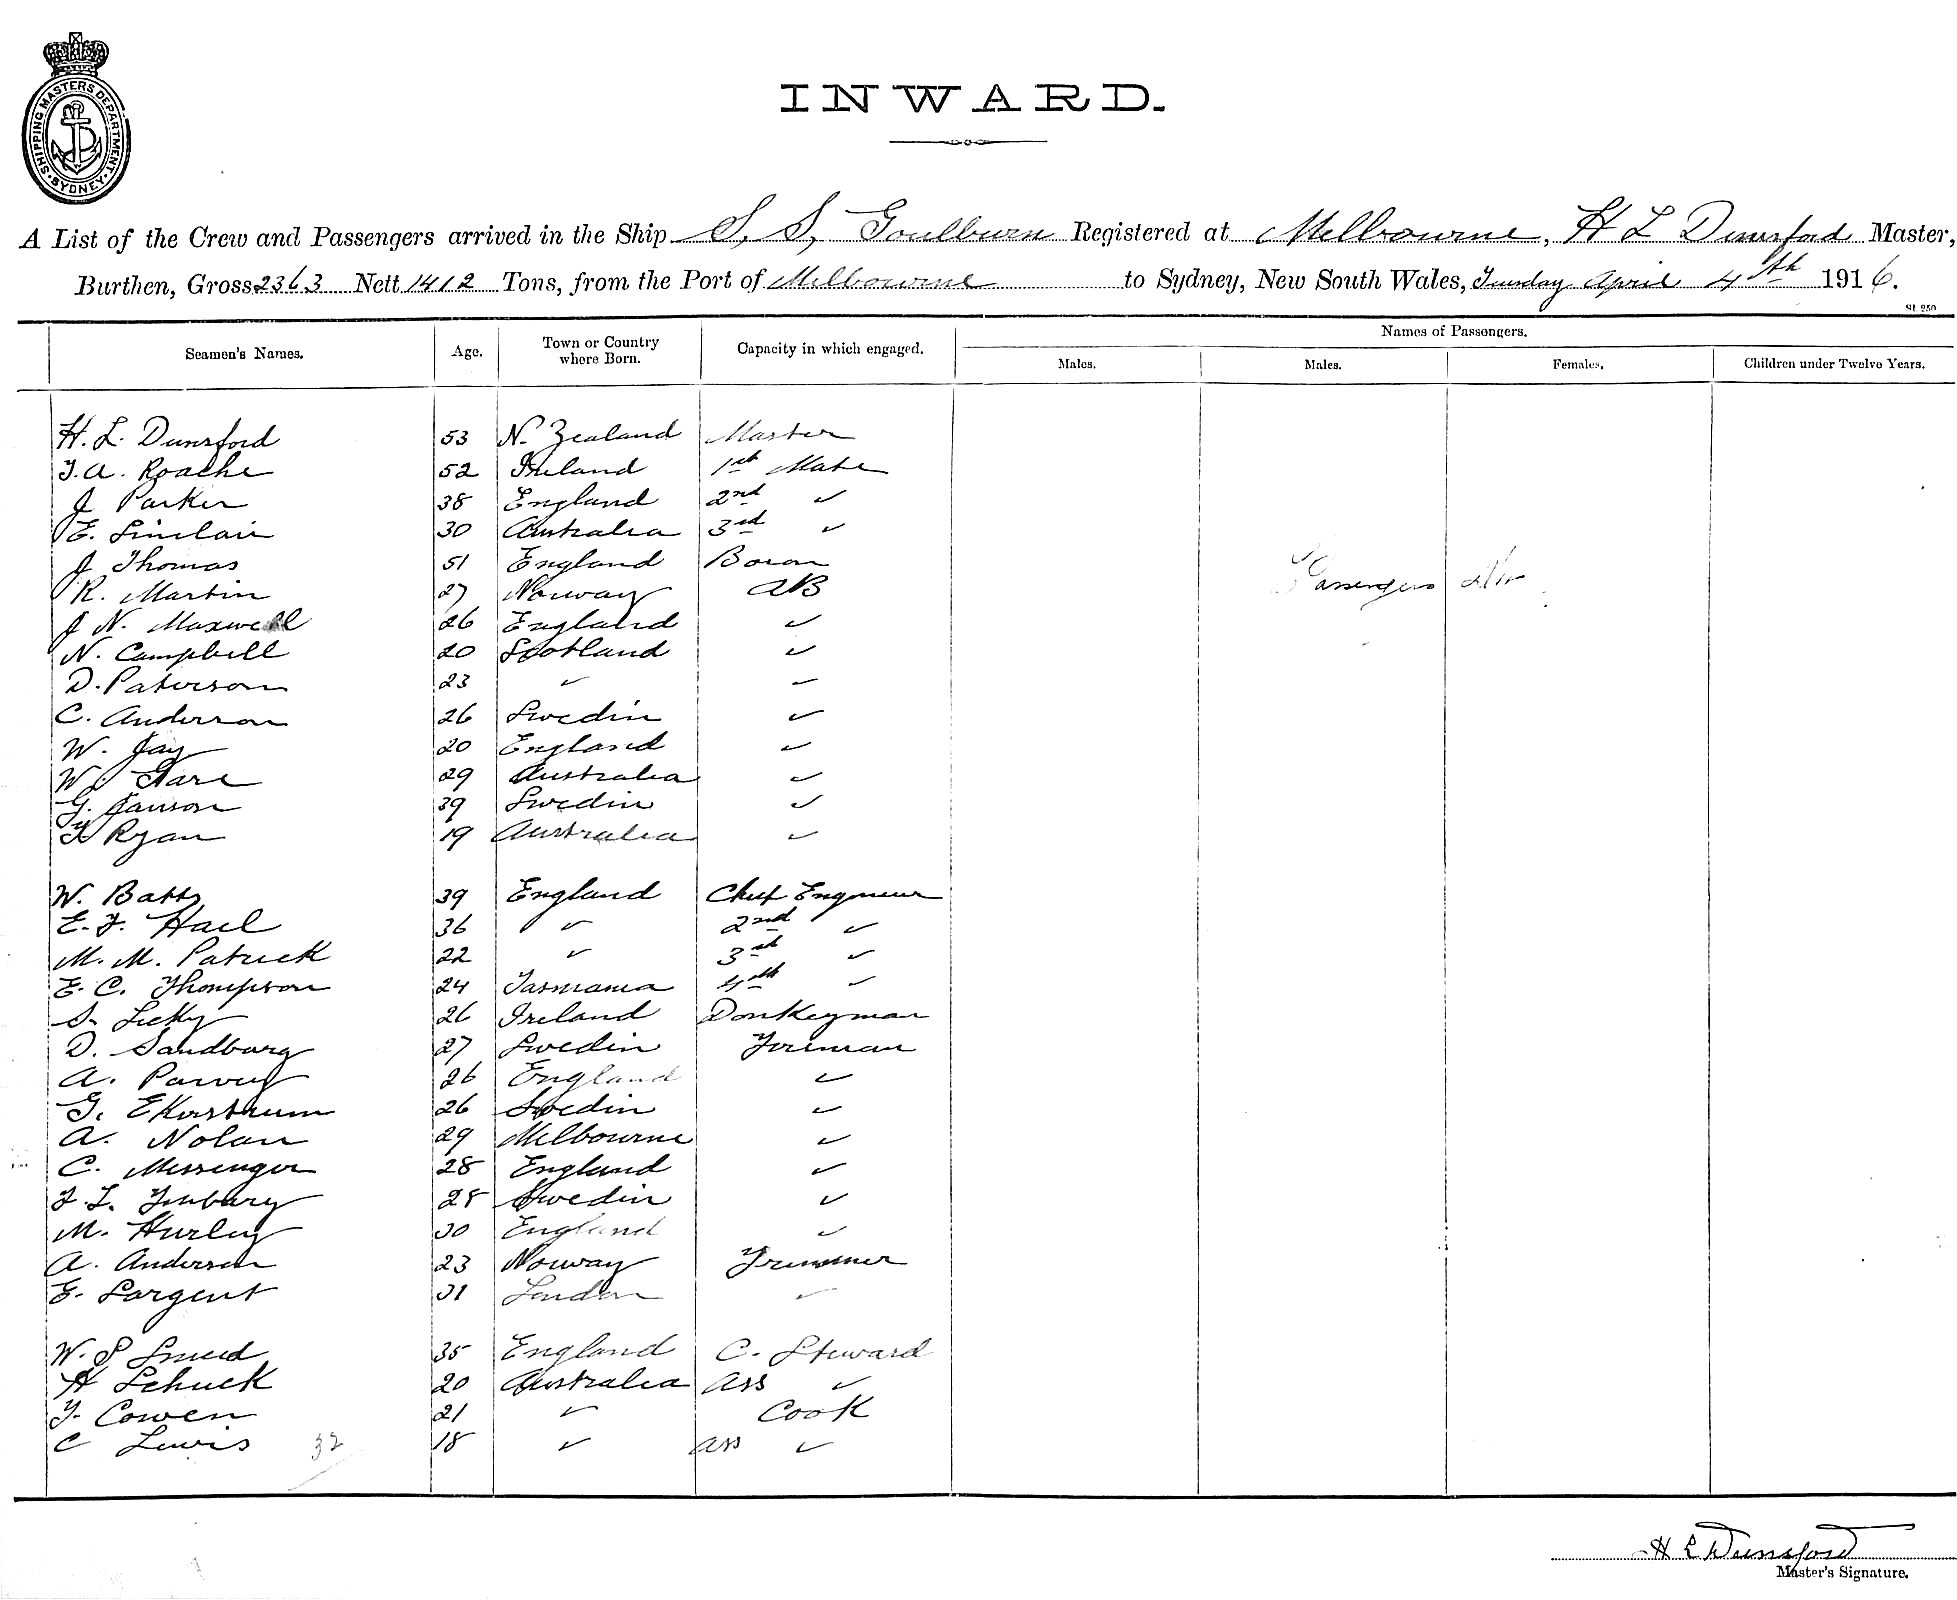 SHIPPING MASTERS DEPARTMENT. SYDNEY.
INWARD.
A List of the Crew and Passengers arrived in the Ship S. S. Goulburn Registered at Melbourne, H L Dunsford Master,
Burthen, Gross 2363 Nett 1412 Tons, from the Port of Melbourne to Sydney, New South Wales, Tuesday April 4th 1916.
St 250
Seamen's Names. Age. Town or Country where Born. Capacity in which engaged. Names of Passengers.
Males. Males. Females. Children under Twelve Years.
H. L. Dunsford 53 N. Zealand Master
T. A. Roache 52 Ireland 1st Mate
J Parker 38 England 2nd ✓
E. Sinclair 30 Australia 3rd ✓
J Thomas 51 England Bosun
R. Martin 27 Norway AB
Passengers Nil
J N. Maxwell 26 England ✓
N. Campbell 20 Scotland ✓
D. Paterson 23 ✓ ✓
C. Anderson 26 Swedin ✓
W. Jay 20 England ✓
W. 29 Australia ✓
G. Janson 39 Swedin ✓
T Ryan 19 Australia ✓
W. Batts 39 England Chief Engineer
E. J. Hall 36 ✓ 2nd ✓
M. M. Patrick 22 ✓ 3rd ✓
E. C. Thompson 24 Tasmania 4th ✓
S. Lecky 26 Ireland Donkeyman
D. Sandburg 27 Swedin Fireman
A. 26 England ✓
G. Ekerstrum 26 Swedin ✓
A. Nolan 29 Melbourne ✓
C. Messenger 28 England ✓
28 Swedin ✓
M. Hurley 30 England ✓
A. Andersen 23 Norway Trimmer
E. Sargent 31 London ✓
W. S Sneed 35 England C. Steward
H Schuck 20 Australia Ass ✓
T. Cowen 21 ✓ Cook
C Lewis 32 18 ✓ Ass ✓
H L Dunsford
Master's Signature.